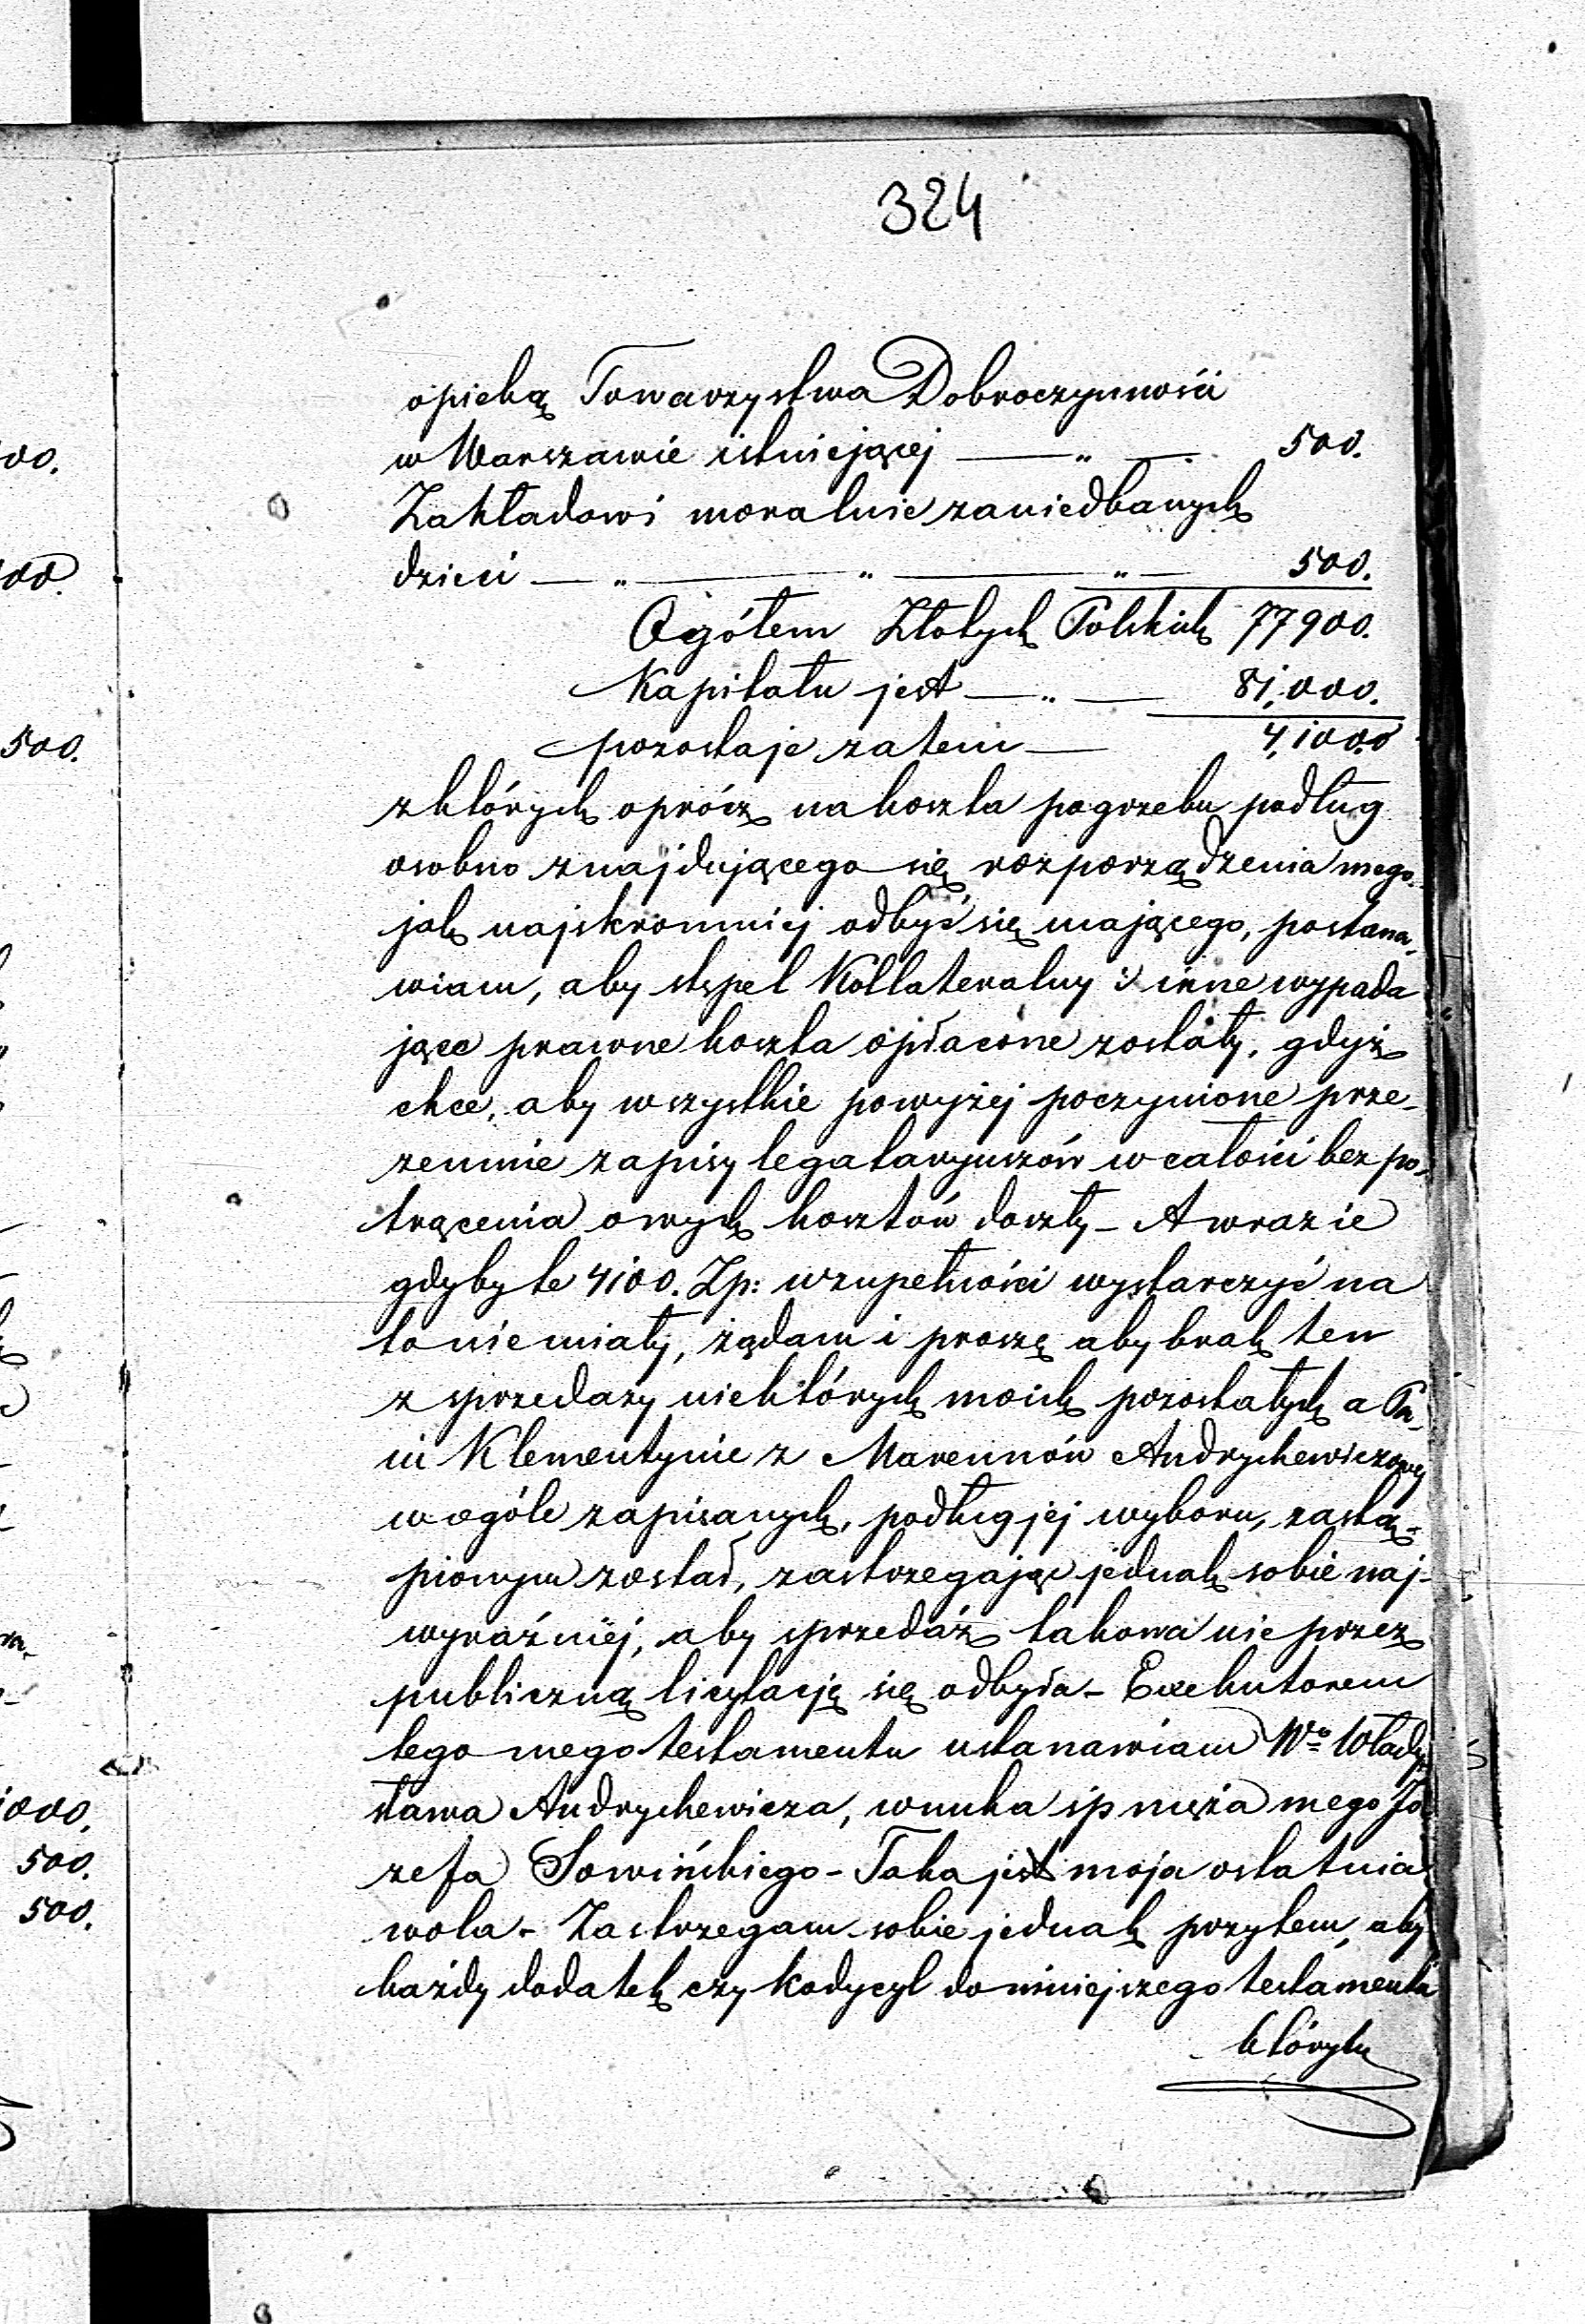 324
opieką Towarzystwa Dobroczynności
w Warszawie istniejącej — „ — 500.
Zakładowi moralnie zaniedbanych
dzieci — „ — „ — „ — 500.
Ogółem Złotych Polskich 77900.
Kapitału jest — „ — 81,000.
pozostaje zatem — 4,100.
z których oprócz na koszta pogrzebu podług
osobno znajdującego się rozporządzenia mego
jak najskromniej odbyć się mającego, postana-
wiam, aby stępel Kollateralny i inne wypada
jące prawne koszta opłacone zostały, gdyż
chce, aby wszystkie powyżej poczynione prze-
zemnie zapisy legataryuszów w całości bez po-
trącenia owych kosztów doszły – A w razie
gdyby te 4100. Zp: w zupełności wystarczyć na
to nie miały, żądam i proszę aby brak ten
z sprzedaży niektórych moich pozostałych a Pa-
ni Klementynie z Marennów Andrychewiczowej
w ogóle zapisanych, podług jej wyboru, zastą-
pionym został, zastrzegając jednak sobie naj-
wyraźniej, aby sprzedaż takowa nie przez
publiczną licytacją się odbyła – Exekutorem
tego mego testamentu ustanawiam Wo Włady
sława Andrychewicza, wnuka śp męża mego Jó
zefa Sowińskiego – Taka jest moja ostatnia
wola – Zastrzegam sobie jednak przytem, aby
każdy dodatek czy kodycyl do niniejszego testamentu
któryby
00.
00.
500.
1000.
500.
500.